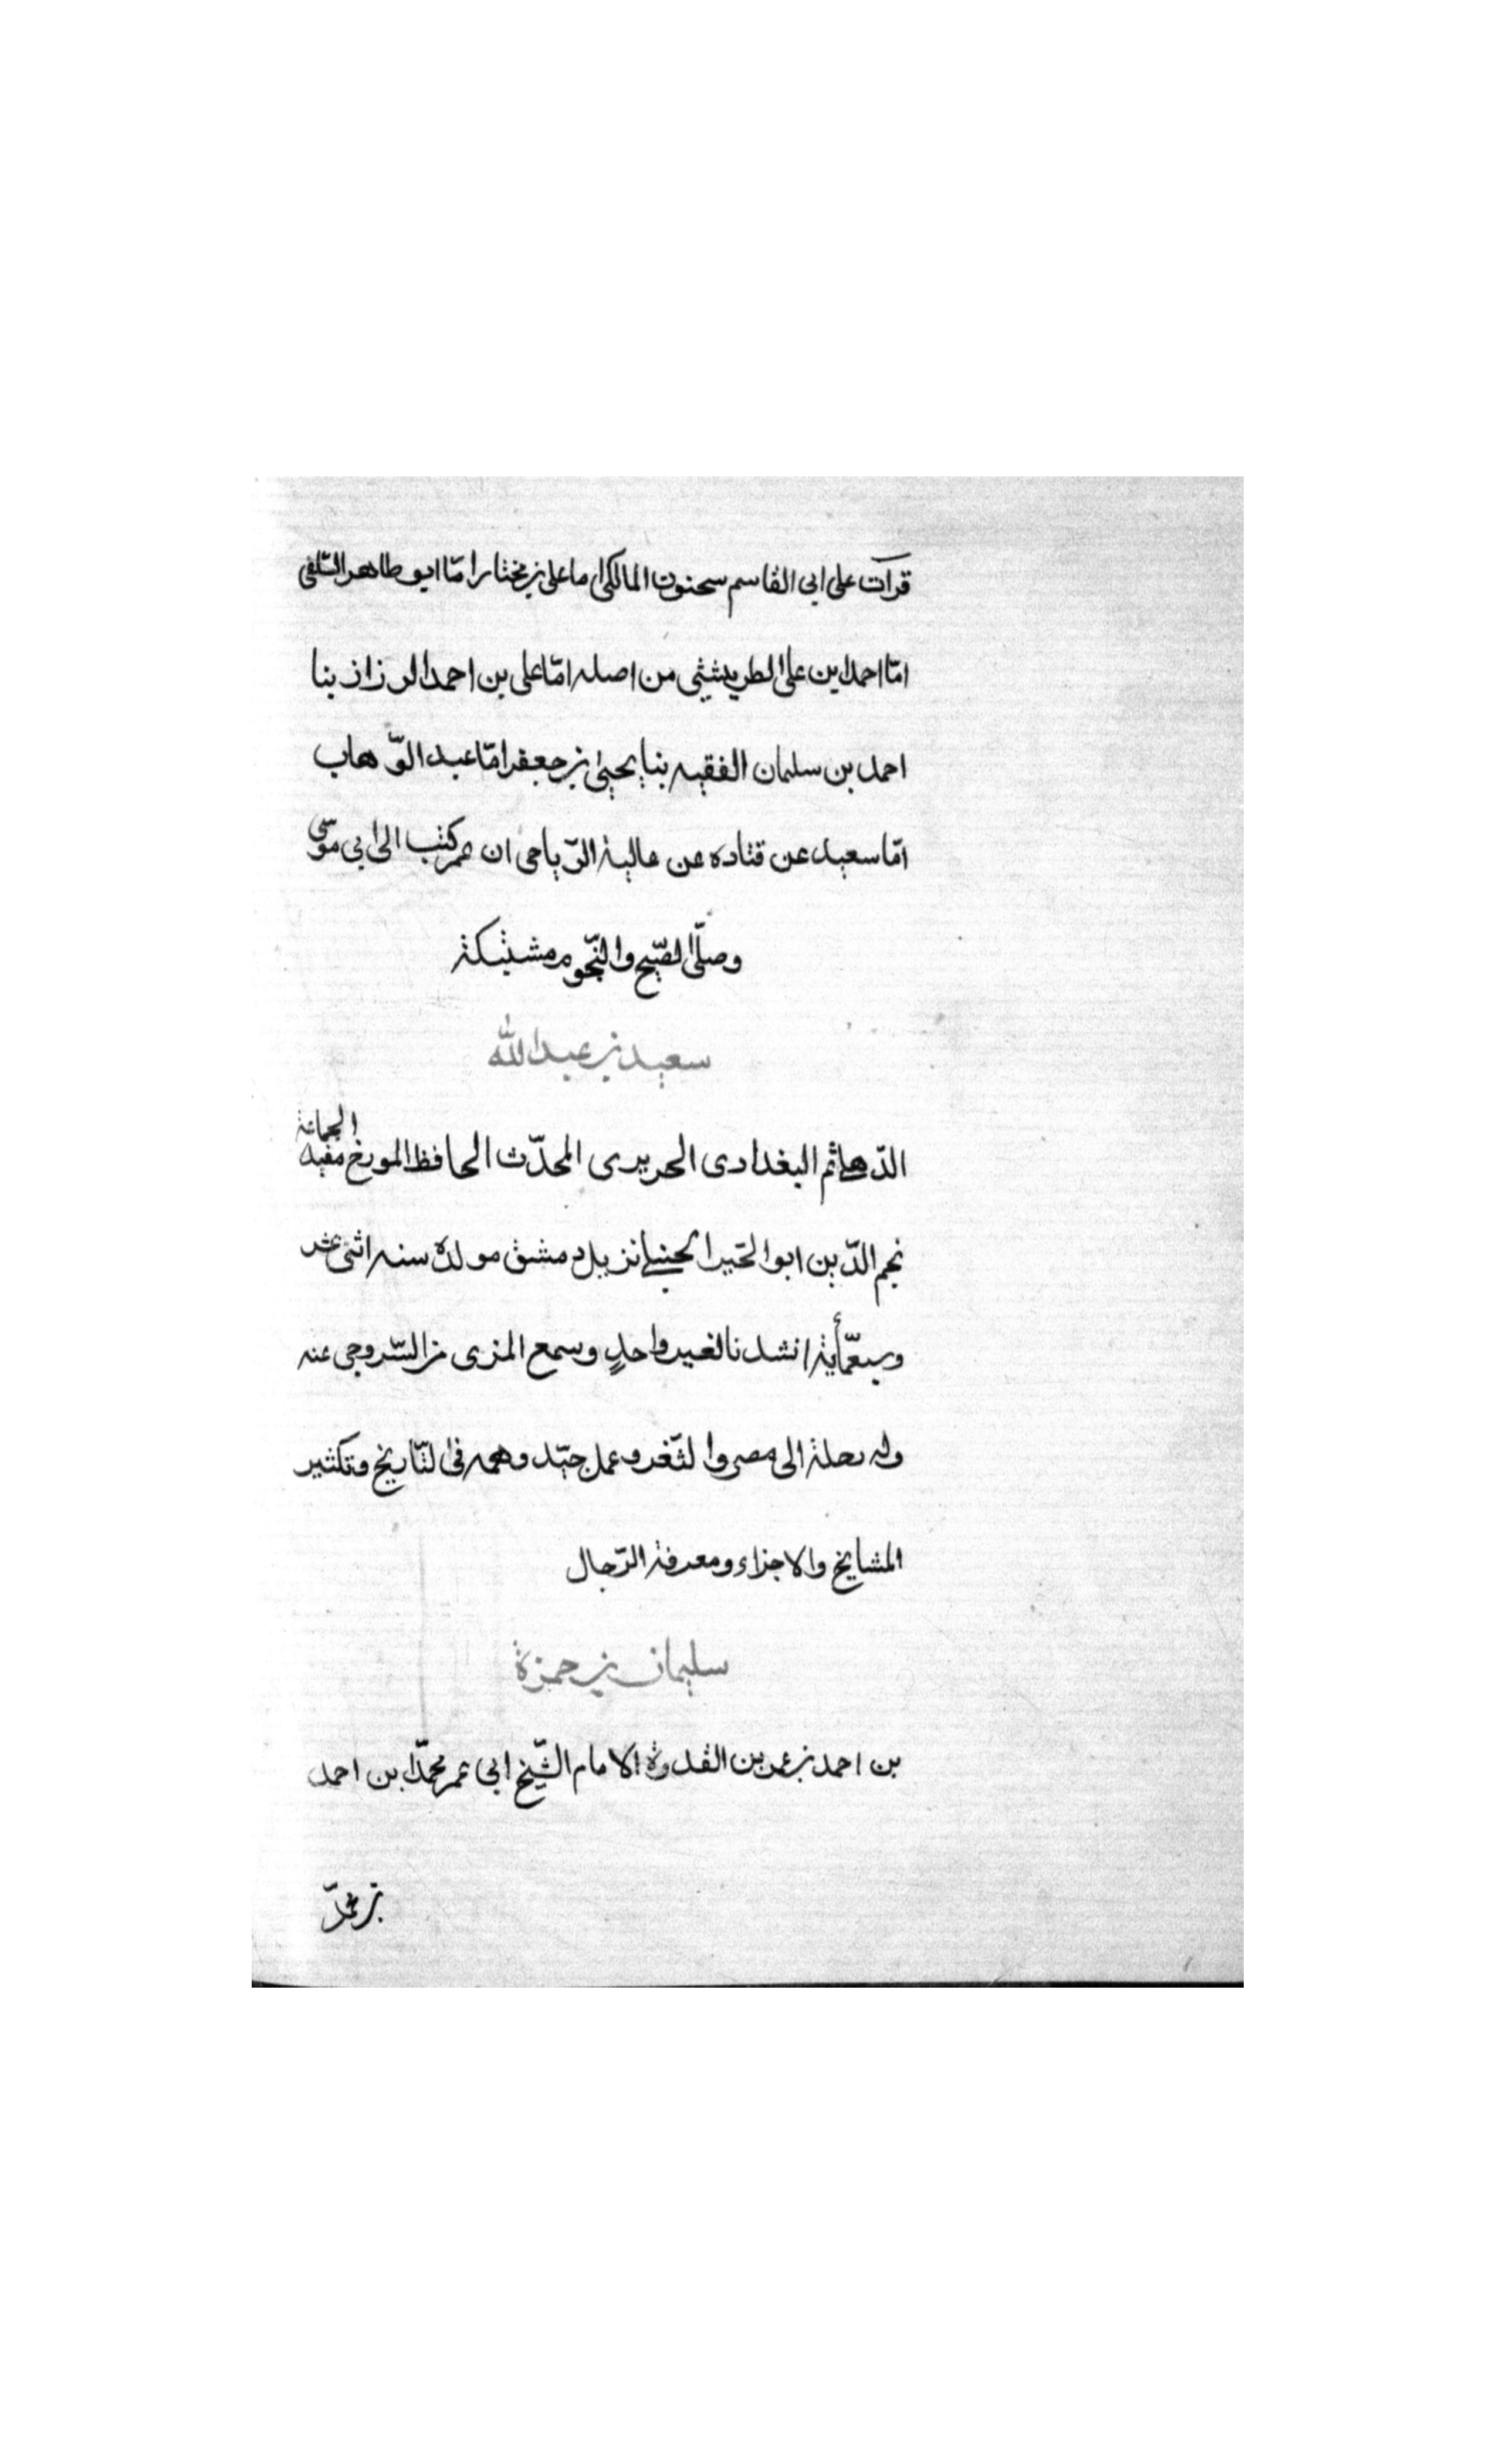 قرآت على ابى القاسم سحنون المالكى اما على بن مختار امّا ابو طاهر السّلفى
امّا احمد ابن على الطريثيثى من اصله امّا على بن احمد الرزاز بنا
احمد بن سليمان الفقيه بنا يحيى بن جعفر امّا عبد الوّهاب
امّا سعيد عن قتاده عن عالية الرّياحى ان عمر كتب الى ابى موسى
وصلّى الصّبح والنّجوم مشتبكة
سعيد بن عبدالله
الدّهلى ثم البغدادى الحريرى المحدّث الحافظ المورخ مفيد الجماعة
نجم الدّين ابو الخير الحنبلى نزيل دمشق مولده سنه اثنى عشر
وسبعمّأية انشدنا لغير واحدٍ وسمع المزى من السّروجى عنه
وله رحلة الى مصر والثّغر وعمل جيّد وهمه فى التّاريخ وتكثير
المشايخ والاجزاء ومعرفة الرّجال
سليمان بن حمزة
بن احمد بن عمر بن القدوة الامام الشّيخ ابى عمر محمّد ابن احمد
بن محمّد